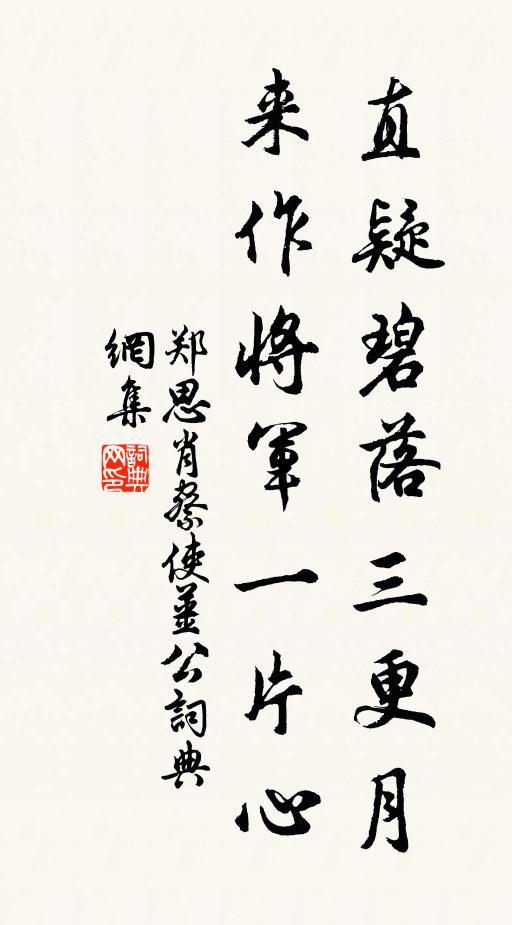 直疑碧落三更月
来作将軍一片心
郑思肖察使姜公詞典
網集
詞典
网印